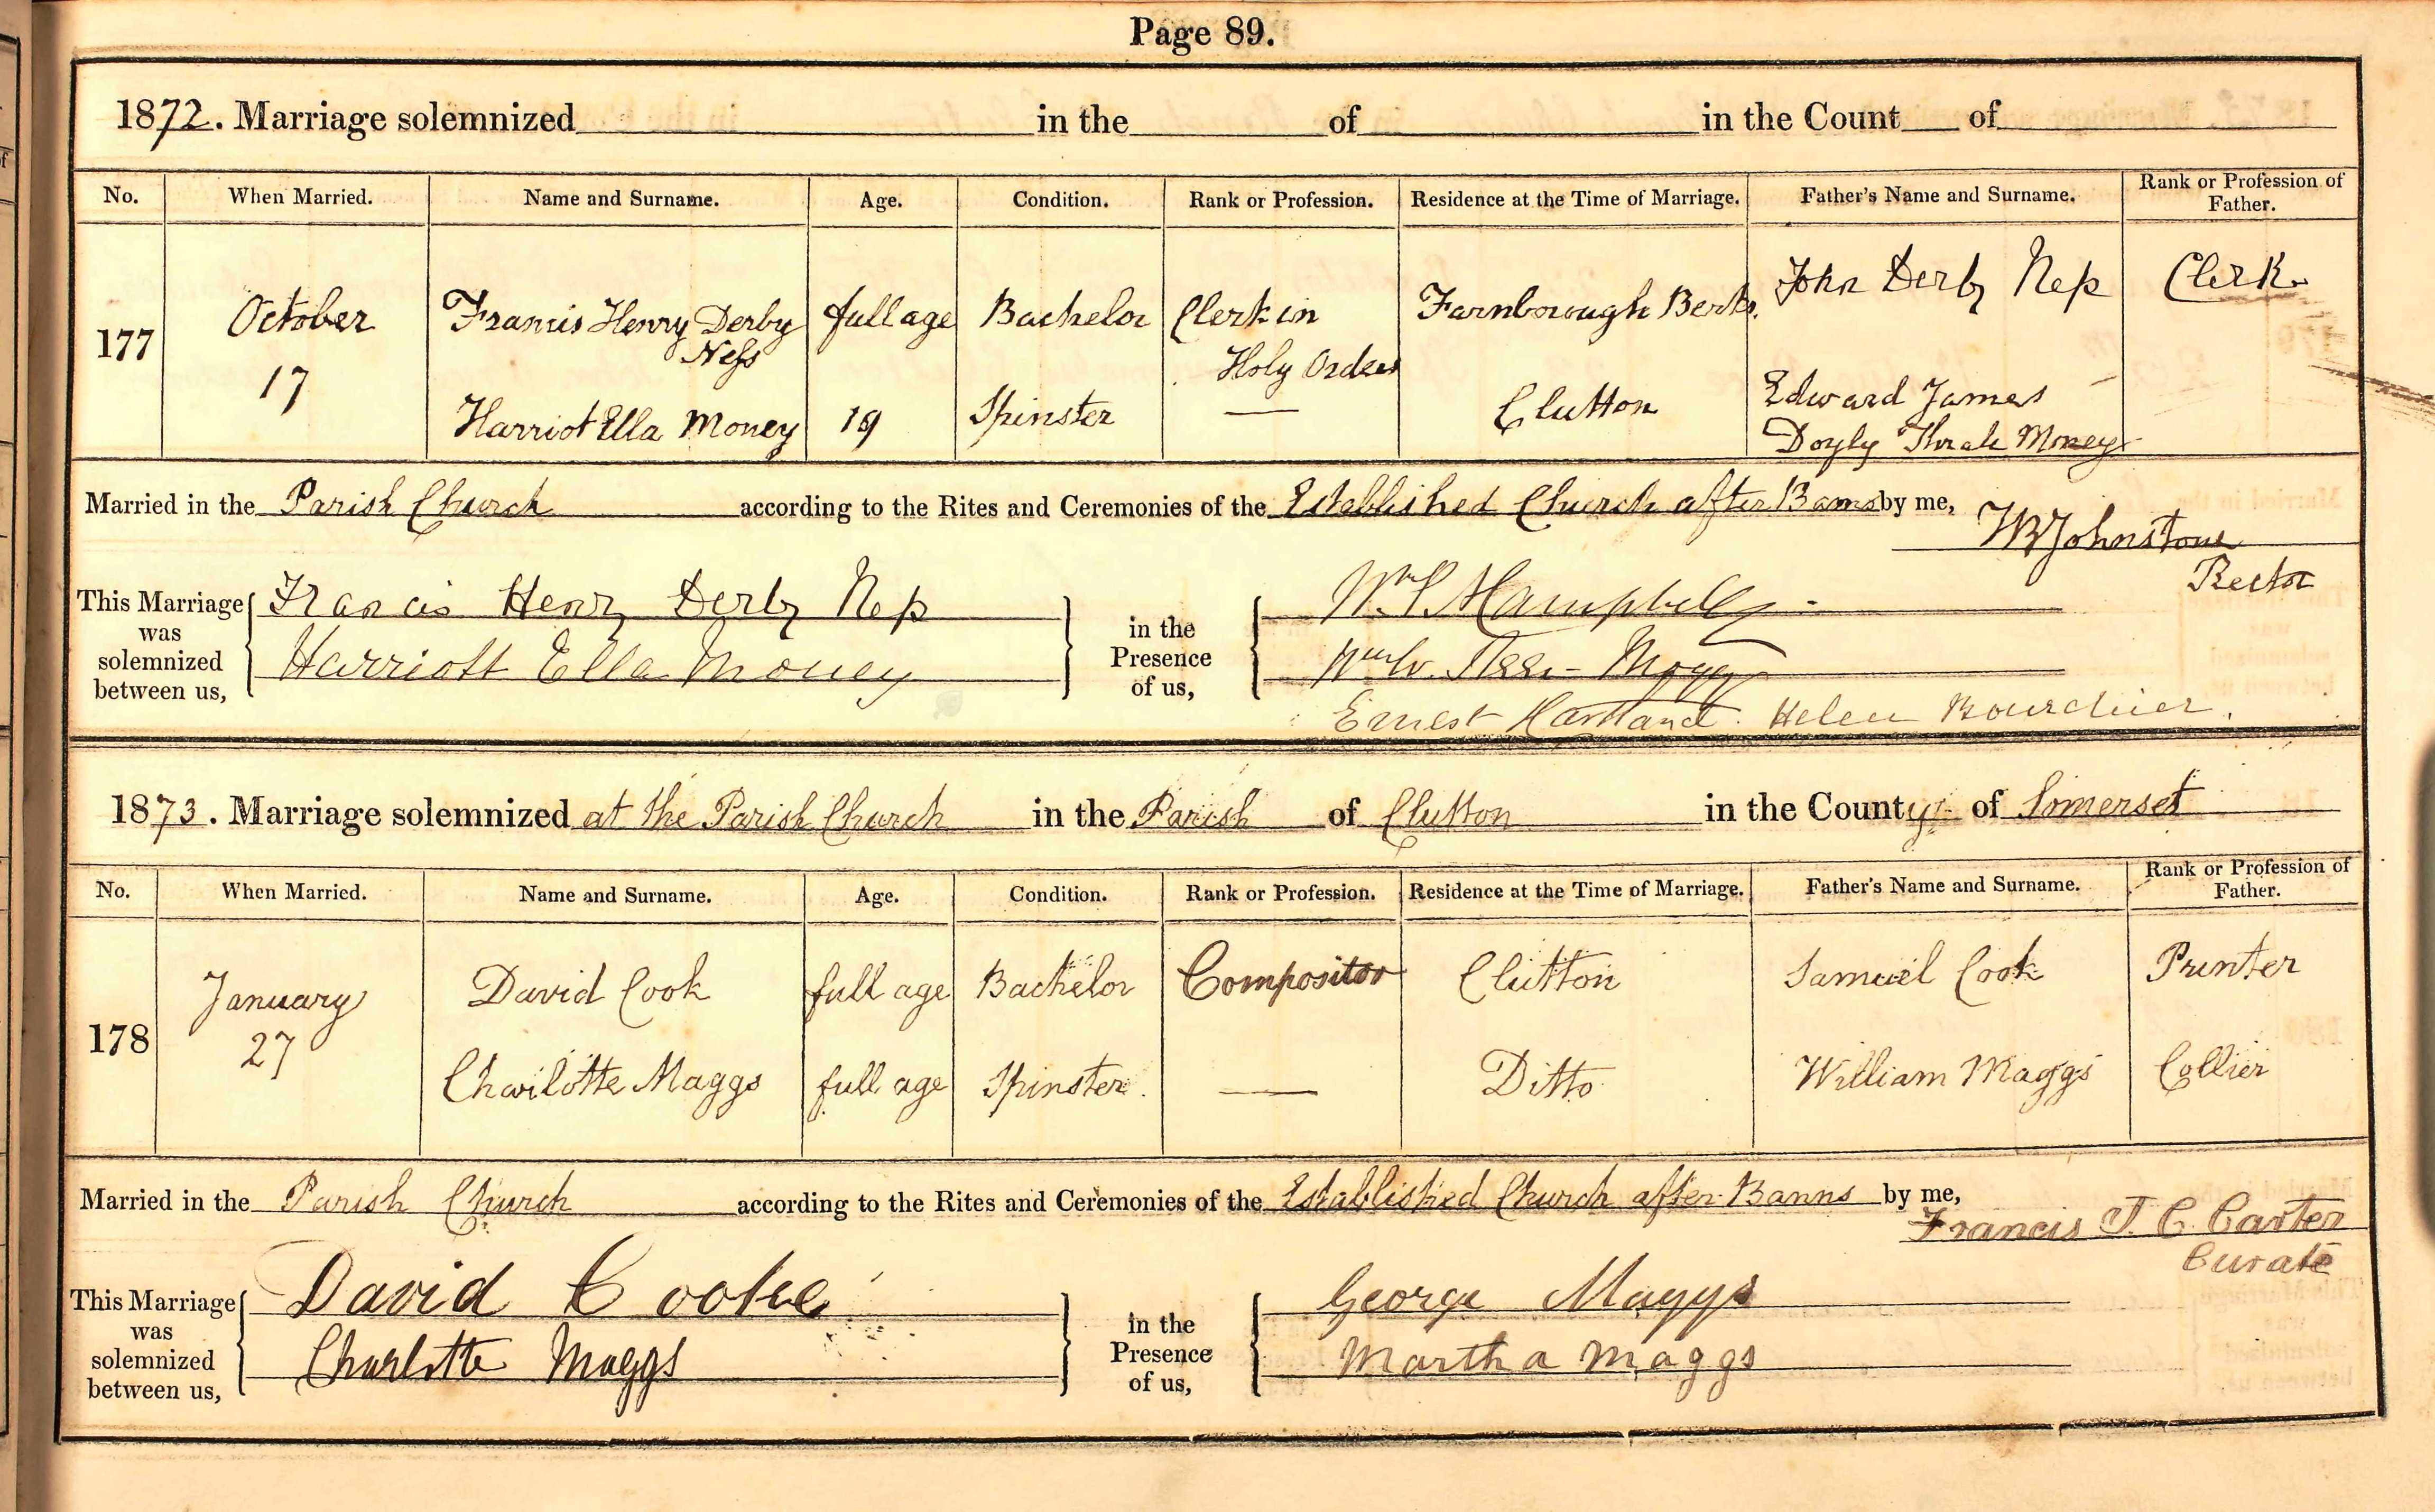 Page 89.
1872. Marriage solemnized in the of in the Count of
No. When Married. Name and Surname. Age. Condition. Rank or Profession. Residence at the Time of Marriage. Father's Name and Surname. Rank or Profession of Father.
177 October 17 Francis Henry Derby Ness full age Bachelor Clerk in Holy Orders Farnborough Berks. John Derby Ness Clerk.
Harriot Ella Money 19 Spinster — Clutton Edward James Doyly Thrale Money —
Married in the Parish Church according to the Rites and Ceremonies of the Established Church after Banns by me,
WBJohnstone
Rector
This Marriage was solemnized between us,
Francis Henry Derby Ness
Harriott Ella Money
in the Presence of us,
Mogg
Ernest Hartland. Helen Bourdieir.
1873. Marriage solemnized at the Parish Church in the Parish of Clutton in the County of Somerset
No. When Married. Name and Surname. Age. Condition. Rank or Profession. Residence at the Time of Marriage. Father's Name and Surname. Rank or Profession of Father.
178 January 27 David Cook full age Bachelor Compositor Clutton Samuel Cook Printer
Charlotte Maggs full age Spinster. — Ditto William Maggs Collier
Married in the Parish Church according to the Rites and Ceremonies of the Established Church after Banns by me,
Francis J. C. Carter
Curate
This Marriage was solemnized between us,
David Cooke
Charlotte Maggs
in the Presence of us,
George Maggs
Martha Maggs